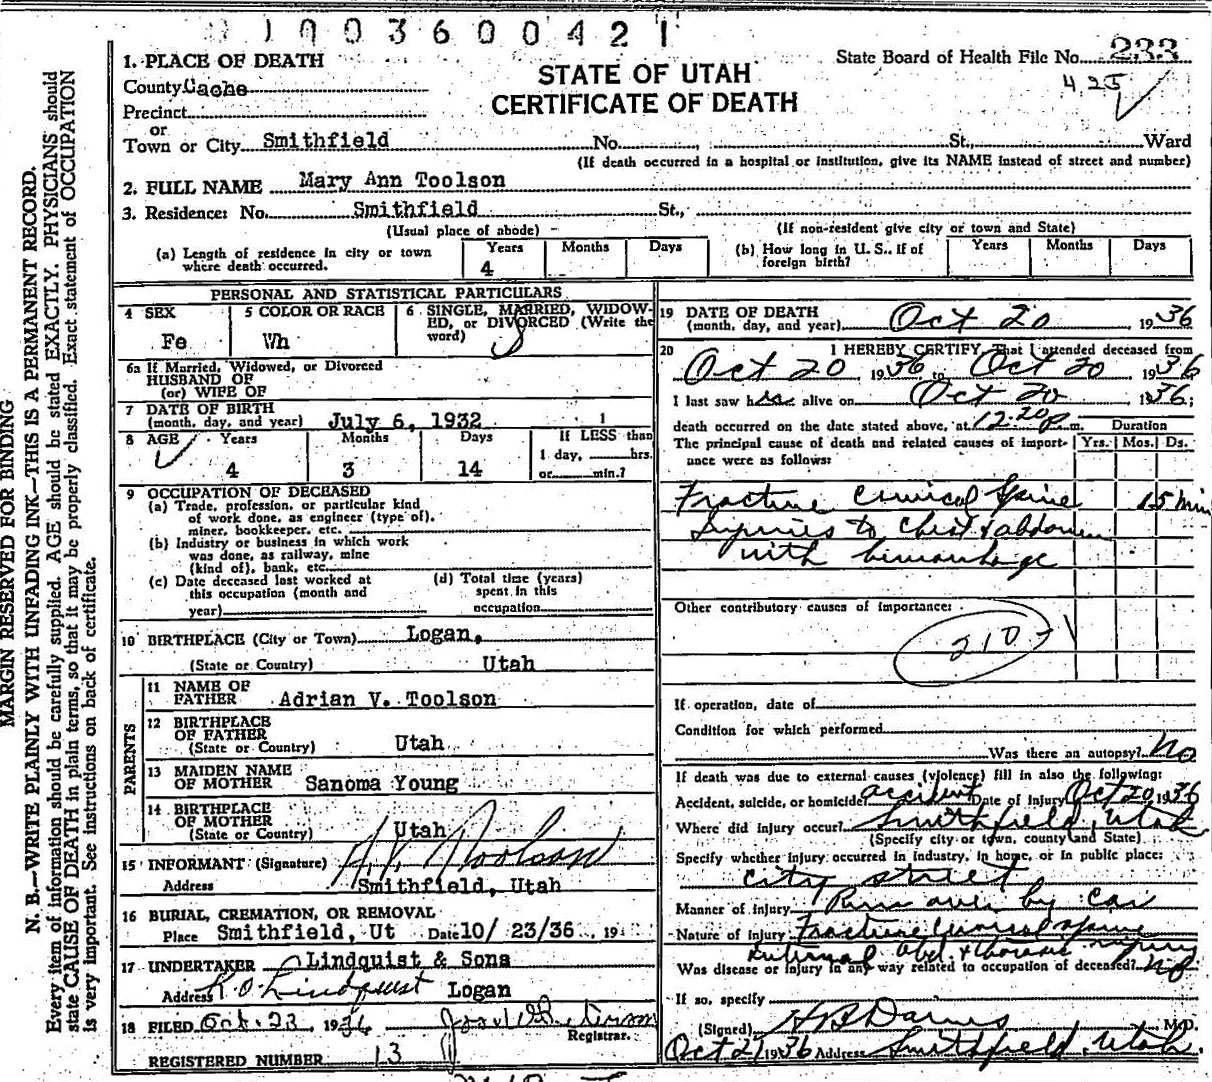 1003600421
MARGIN RESERVED FOR BINDING
N. B.—WRITE PLAINLY WITH UNFADING INK—THIS IS A PERMANENT RECORD.
Every item of information should be carefully supplied. AGE should be stated EXACTLY. PHYSICIANS should
state CAUSE OF DEATH in plain terms, so that it may be properly classified. Exact statement of OCCUPATION
is very important. See instructions on back of certificate.
State Board of Health File No. 233
425
STATE OF UTAH
CERTIFICATE OF DEATH
1. PLACE OF DEATH
County Cache
Precinct
or
Town or City Smithfield No. St., Ward
(If death occurred in a hospital or institution, give its NAME instead of street and number)
2. FULL NAME Mary Ann Toolson
3. Residence: No. Smithfield St.,
(Usual place of abode) (If non-resident give city or town and State)
(a) Length of residence in city or town where death occurred. Years 4 Months Days
(b) How long in U. S., if of foreign birth? Years Months Days
PERSONAL AND STATISTICAL PARTICULARS
4 SEX Fe
5 COLOR OR RACE Wh
6 SINGLE, MARRIED, WIDOWED, or DIVORCED (Write the word) S
6a If Married, Widowed, or Divorced
HUSBAND OF
(or) WIFE OF
7 DATE OF BIRTH
(month, day, and year) July 6, 1932 1
8 AGE Years 4 Months 3 Days 14
If LESS than
1 day, hrs.
or min.?
9 OCCUPATION OF DECEASED
(a) Trade, profession, or particular kind
of work done, as engineer (type of),
miner, bookkeeper, etc.
(b) Industry or business in which work
was done, as railway, mine
(kind of), bank, etc.
(c) Date deceased last worked at
this occupation (month and
year)
(d) Total time (years)
spent in this
occupation
10 BIRTHPLACE (City or Town) Logan,
(State or Country) Utah
PARENTS
11 NAME OF
FATHER Adrian V. Toolson
12 BIRTHPLACE
OF FATHER
(State or Country) Utah
13 MAIDEN NAME
OF MOTHER Sanoma Young
14 BIRTHPLACE
OF MOTHER
(State or Country) Utah
15 INFORMANT (Signature) A. V. Toolson
Address Smithfield, Utah
16 BURIAL, CREMATION, OR REMOVAL
Place Smithfield, Ut Date 10/ 23/36 19
17 UNDERTAKER Lindquist & Sons
Address R. O. Lindquist Logan
18 FILED Oct. 23, 1936
Registrar.
REGISTERED NUMBER 13
19 DATE OF DEATH
(month, day, and year) Oct 20, 1936
20 I HEREBY CERTIFY, That I attended deceased from
Oct 20 1936 to Oct 20, 1936
I last saw her alive on Oct 20 1936;
death occurred on the date stated above, at 12:20 p m.
The principal cause of death and related causes of importance were as follows:
Duration
Yrs. Mos. Ds.
Fracture Cervical Spine 15 min
Injuries to Chest & abdomen
with hemorrhage
Other contributory causes of importance:
210
If operation, date of
Condition for which performed
Was there an autopsy? No
If death was due to external causes (violence) fill in also the following:
Accident, suicide, or homicide? accident Date of injury Oct 20 1936
Where did injury occur? Smithfield, Utah
(Specify city or town, county and State)
Specify whether injury occurred in industry, in home, or in public place:
City street
Manner of injury Run over by car
Nature of injury Fracture Cervical spine
Internal Abd. & thoracic injury
Was disease or injury in any way related to occupation of deceased? No
If so, specify
(Signed) M.D.
Oct 21 1936 Address Smithfield, Utah.